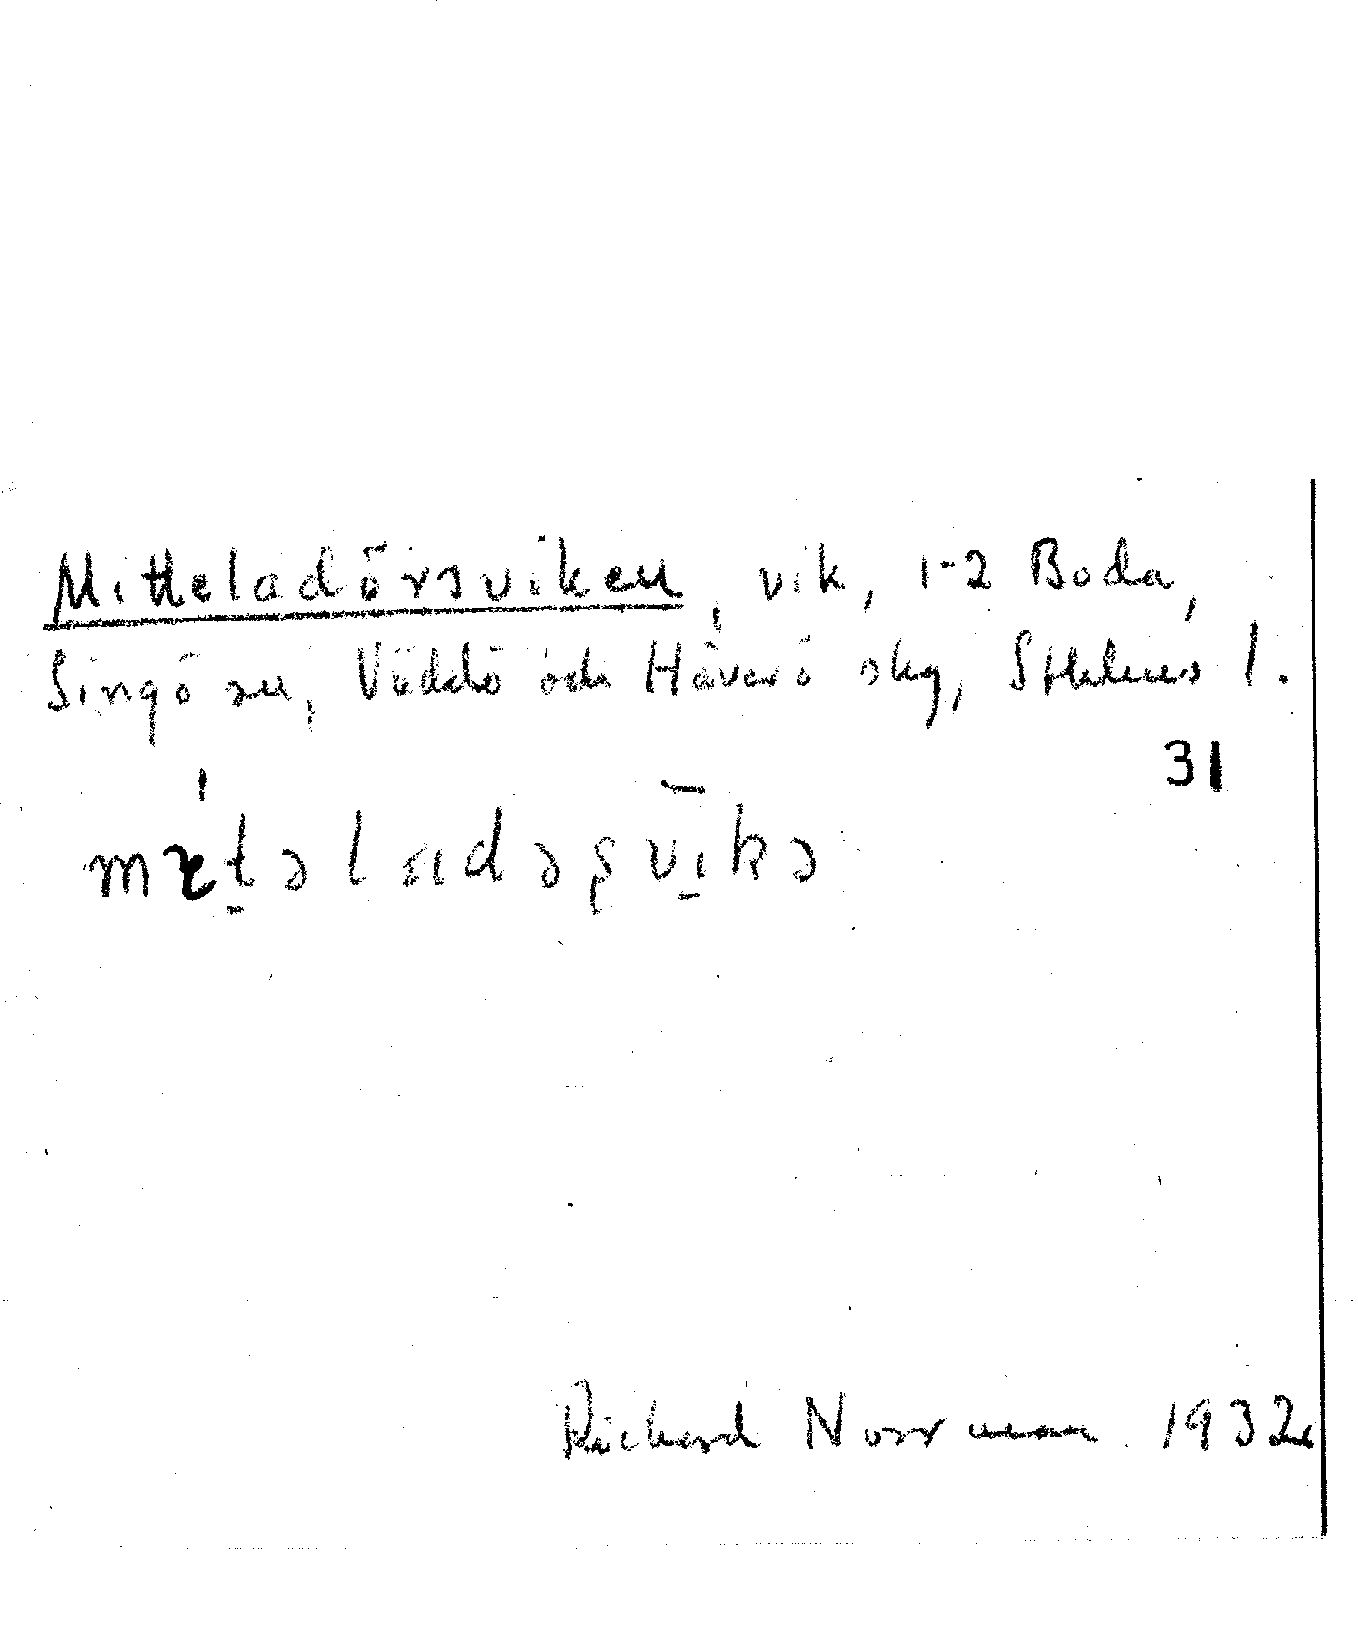 Mitteladörsviken, vik, 1-2 Boda,
Singö sn, Väddö och Häverö skg, Sthlms l.
31
Richard Norrman 1932